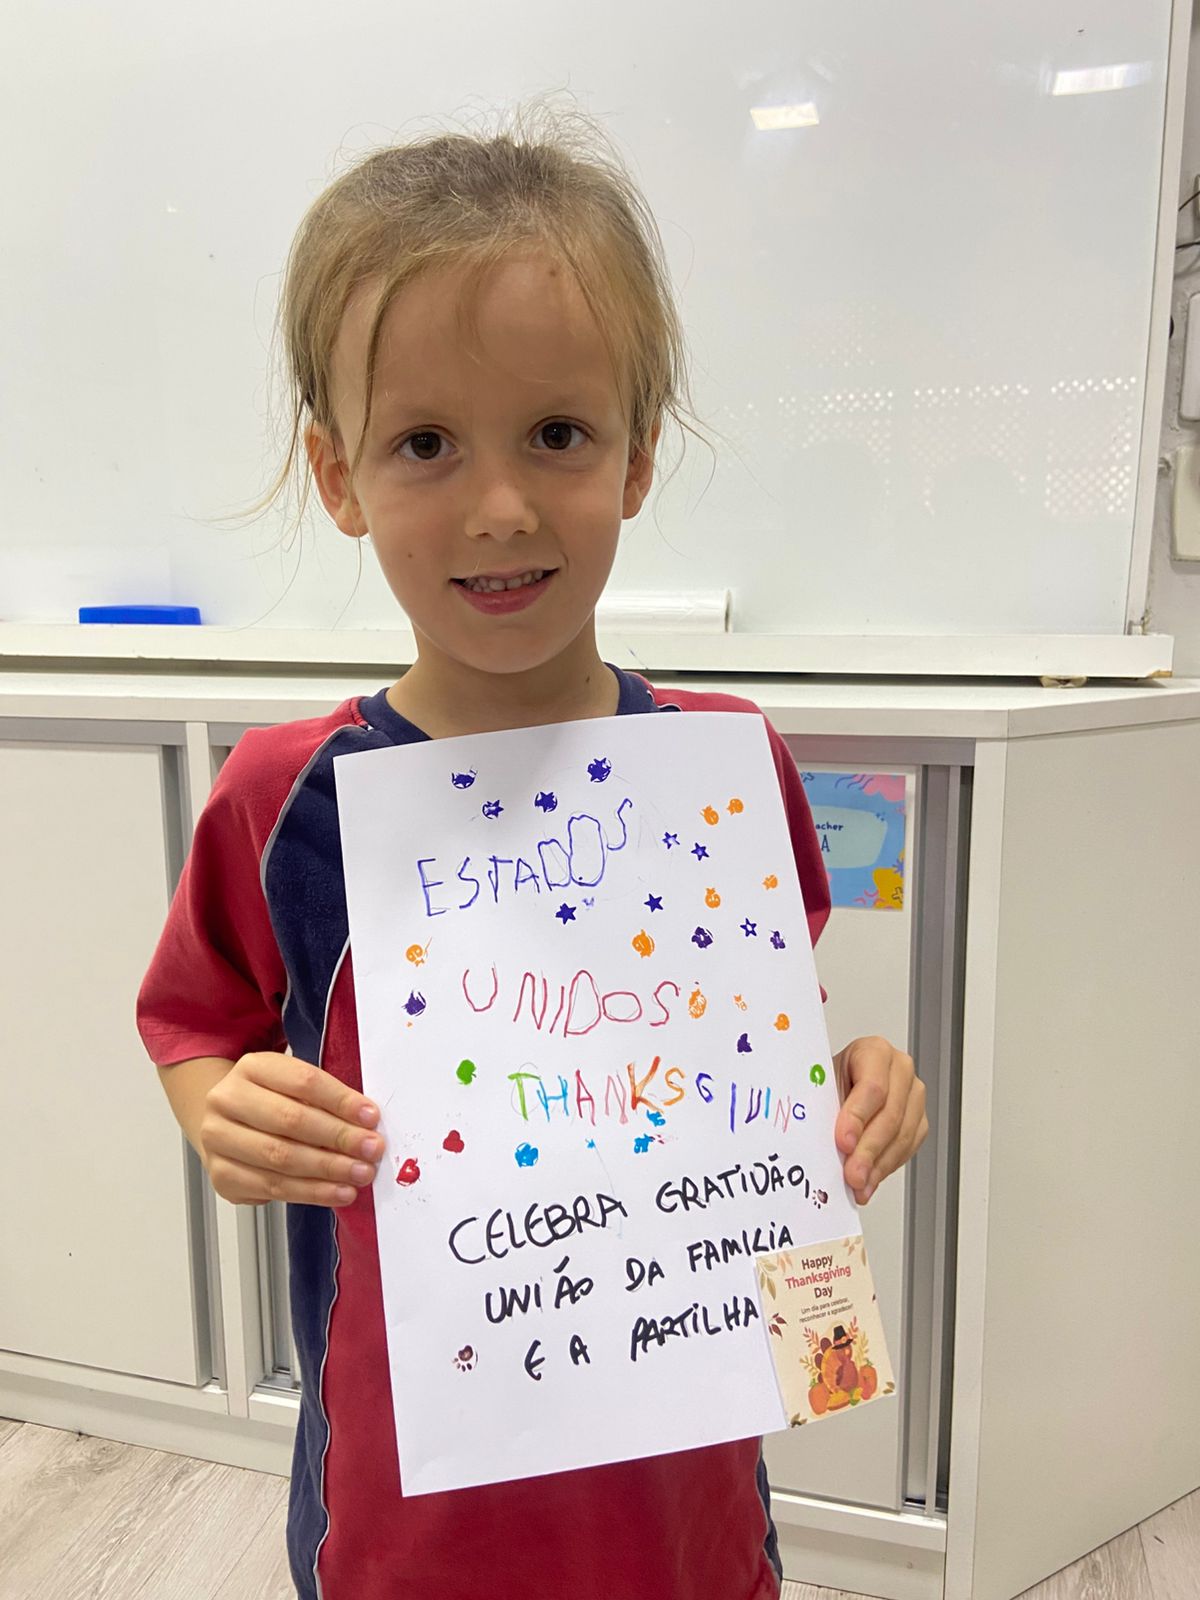 ESTADOS
UNIDOS
THANKSGIVING
CELEBRA GRATIDÃO,
UNIÃO DA FAMILIA
E A PARTILHA
Happy
Thanksgiving
Day
Um dia para celebrar,
reconhecer e agradecer!
acher
A